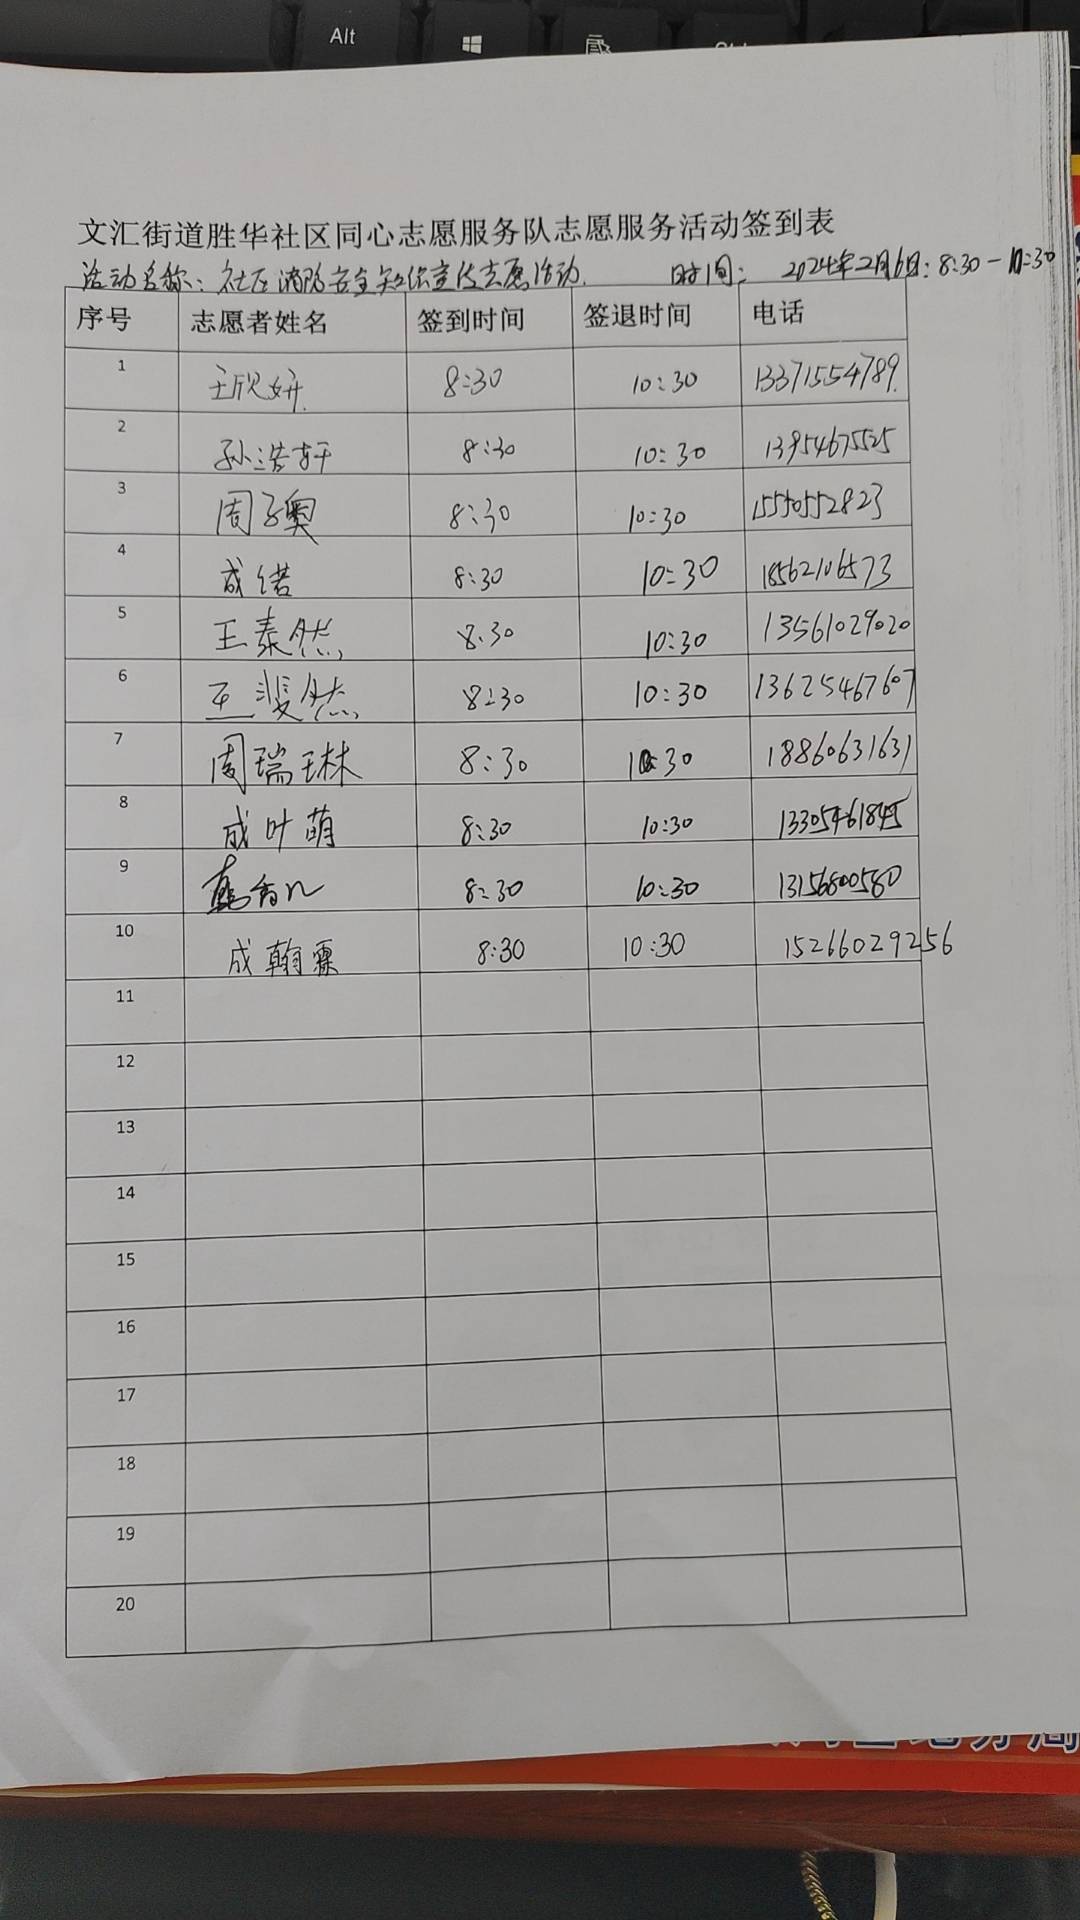 Alt
Ctrl
文汇街道胜华社区同心志愿服务队志愿服务活动签到表
活动名称：社区消防安全知识宣传志愿活动. 时间： 2024年2月6日：8:30-10:30
序号 志愿者姓名 签到时间 签退时间 电话
1 王欣妍. 8:30 10:30 13371554789.
2 孙浩轩 8:30 10:30 13954675525
3 周子奥 8:30 10:30 15550552823
4 成偌 8:30 10:30 18562106573
5 王泰然 8:30 10:30 13561029020
6 王斐然 8:30 10:30 13625467607
7 周瑞琳 8:30 10:30 18860631631
8 成叶萌 8:30 10:30 13305461845
9 8:30 10:30 13156800580
10 成翰霖 8:30 10:30 15266029256
11
12
13
14
15
16
17
18
19
20